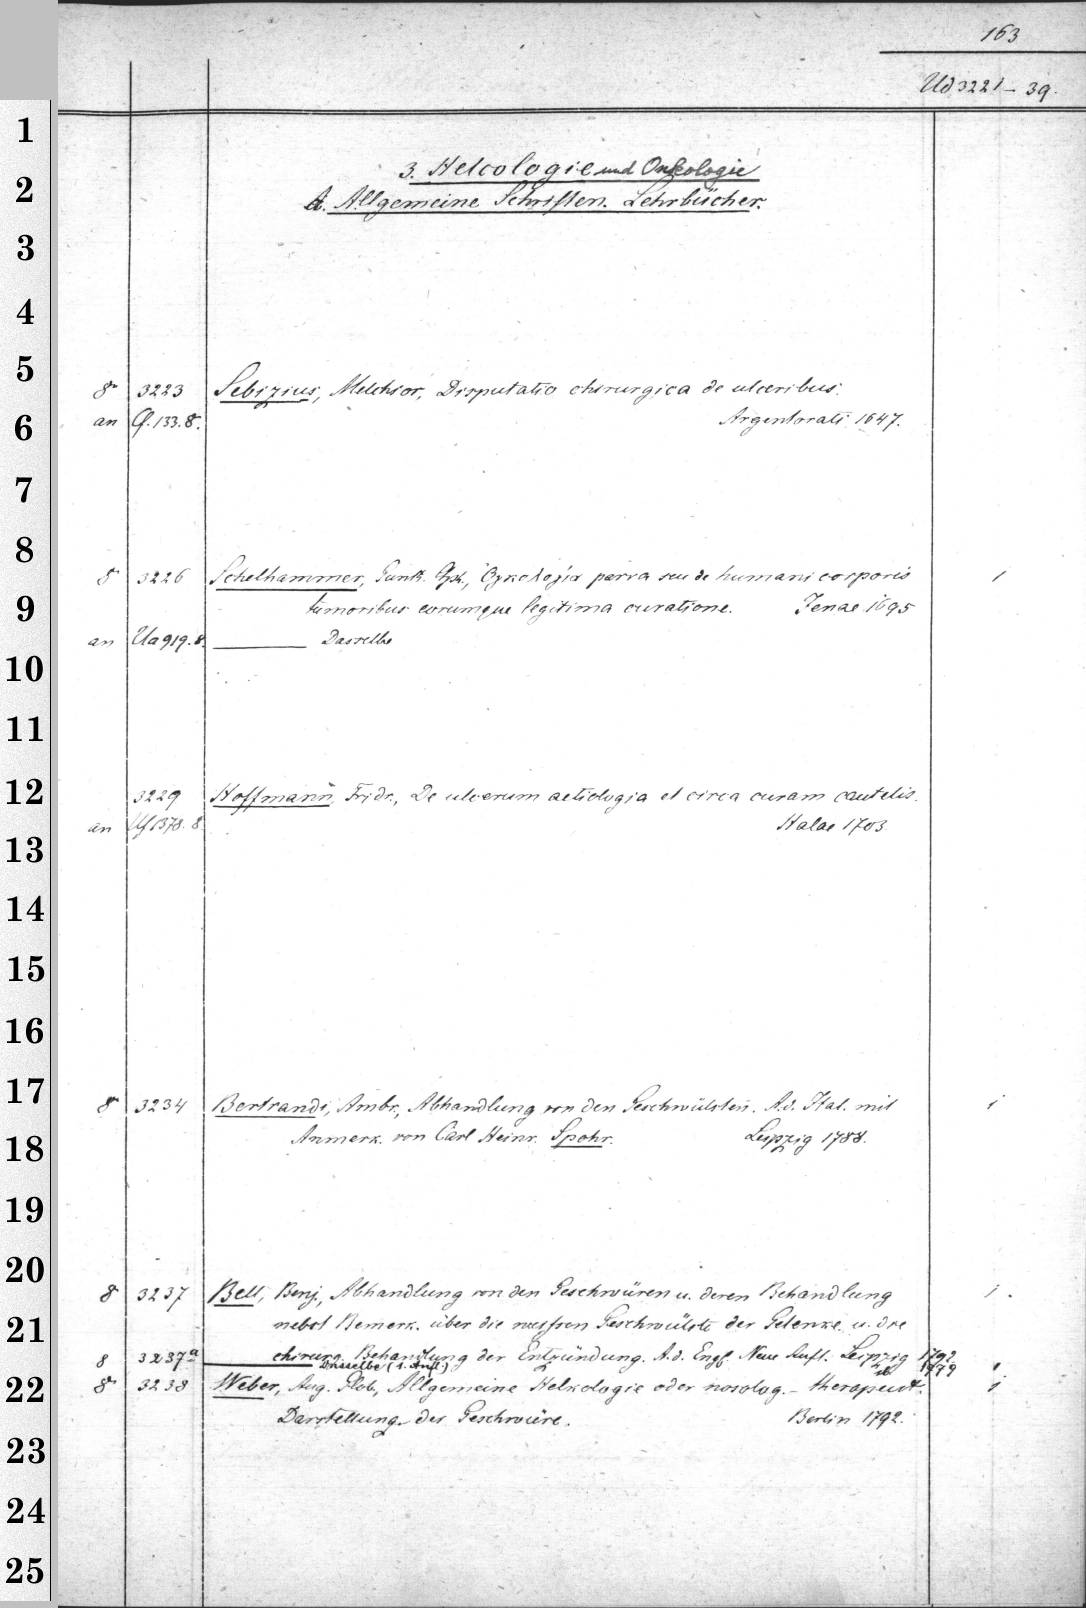 163
Ud 3221-39.
1
3. Helcologie und Onkologie
2
A. Allgemeine Schriften. Lehrbücher.
3
4
5
8° 3223 Sebizius, Melchior, Disputatio chirurgica de ulceribus.
6
an Cf. 133. 8. Argentorati 1647.
7
8
8 3226 Schelhammer, Gunth. Ογκολογία parva seu de humani corporis 1
9
tumoribus eorumque legitima curatione. Jenae 1695
an Ua 919. 8. ——— Dasselbe
10
11
12
3229 Hoffmann, Fridr., De ulcerum aetiologia et circa curam cautelis.
an Uf 1378. 8. Halae 1703
13
14
15
16
17
8 3234 Bertrandi, Ambr., Abhandlung von den Geschwülsten. A. d. Ital. mit 1
18
Anmerk. von Carl Heinr. Spohr. Leipzig 1788.
19
20
8 3237 Bell, Benj., Abhandlung von den Geschwüren u. deren Behandlung 1.
21
nebst Bemerk. über die weissen Geschwülste der Gelenke u. die
chirurg. Behandlung der Entzündung. A. d. Engl. Neue Aufl. Leipzig 1792
8 3237a ——— Dasselbe (1. Aufl.) 1779 1
22
8 3238 Weber, Aug. Glob, Allgemeine Helkologie oder nosolog.- therapeut. 1
Darstellung der Geschwüre. Berlin 1792.
23
24
25